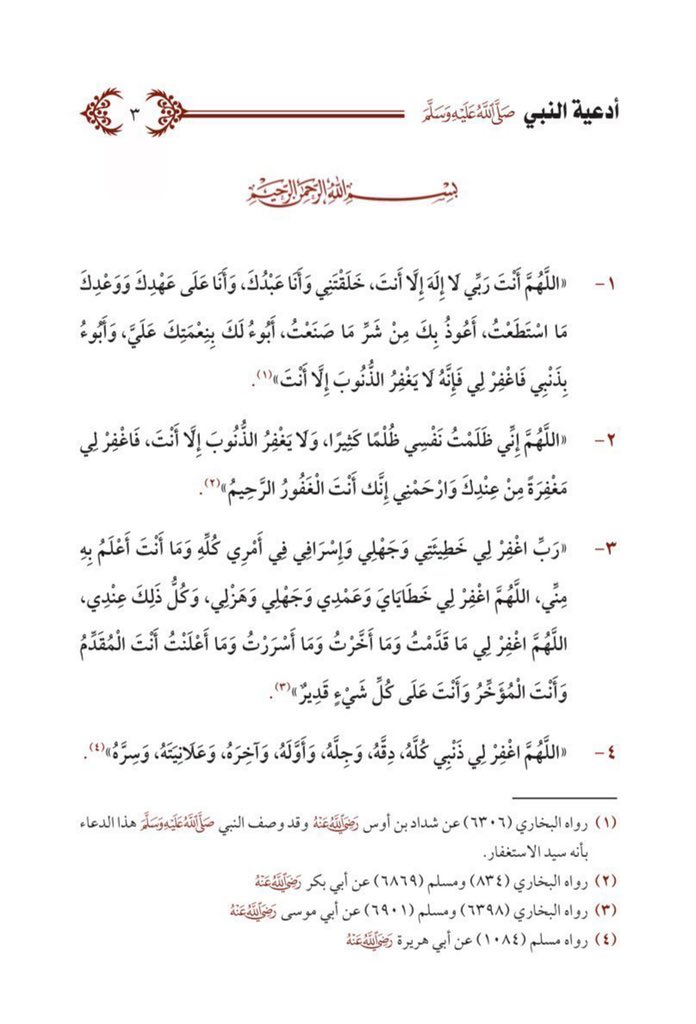 أدعية النبي صَلَّى اللَّهُ عَلَيْهِ وَسَلَّمَ
٣
بِسْمِ اللَّهِ الرَّحْمَنِ الرَّحِيمِ
١- «اللَّهُمَّ أَنْتَ رَبِّي لَا إِلَهَ إِلَّا أَنتَ، خَلَقْتَنِي وَأَنَا عَبْدُكَ، وَأَنَا عَلَى عَهْدِكَ وَوَعْدِكَ
مَا اسْتَطَعْتُ، أَعُوذُ بِكَ مِنْ شَرِّ مَا صَنَعْتُ، أَبُوءُ لَكَ بِنِعْمَتِكَ عَلَيَّ، وَأَبُوءُ
بِذَنْبِي فَاغْفِرْ لِي فَإِنَّهُ لَا يَغْفِرُ الذُّنُوبَ إِلَّا أَنْتَ»(١).
٢- «اللَّهُمَّ إِنِّي ظَلَمْتُ نَفْسِي ظُلْمًا كَثِيرًا، وَلَا يَغْفِرُ الذُّنُوبَ إِلَّا أَنْتَ، فَاغْفِرْ لِي
مَغْفِرَةً مِنْ عِنْدِكَ وَارْحَمْنِي إِنَّك أَنْتَ الْغَفُورُ الرَّحِيمُ»(٢).
٣- «رَبِّ اغْفِرْ لِي خَطِيئَتِي وَجَهْلِي وَإِسْرَافِي فِي أَمْرِي كُلِّهِ وَمَا أَنْتَ أَعْلَمُ بِهِ
مِنِّي، اللَّهُمَّ اغْفِرْ لِي خَطَايَايَ وَعَمْدِي وَجَهْلِي وَهَزْلِي، وَكُلُّ ذَلِكَ عِنْدِي،
اللَّهُمَّ اغْفِرْ لِي مَا قَدَّمْتُ وَمَا أَخَّرْتُ وَمَا أَسْرَرْتُ وَمَا أَعْلَنْتُ أَنْتَ الْمُقَدِّمُ
وَأَنْتَ الْمُؤَخِّرُ وَأَنْتَ عَلَى كُلِّ شَيْءٍ قَدِيرٌ»(٣).
٤- «اللَّهُمَّ اغْفِرْ لِي ذَنْبِي كُلَّهُ، دِقَّهُ، وَجِلَّهُ، وَأَوَّلَهُ، وَآخِرَهُ، وَعَلَانِيَتَهُ، وَسِرَّهُ»(٤).
(١) رواه البخاري (٦٣٠٦) عن شداد بن أوس رَضِيَ اللَّهُ عَنْهُ وقد وصف النبي صَلَّى اللَّهُ عَلَيْهِ وَسَلَّمَ هذا الدعاء
بأنه سيد الاستغفار.
(٢) رواه البخاري (٨٣٤) ومسلم (٦٨٦٩) عن أبي بكر رَضِيَ اللَّهُ عَنْهُ
(٣) رواه البخاري (٦٣٩٨) ومسلم (٦٩٠١) عن أبي موسى رَضِيَ اللَّهُ عَنْهُ
(٤) رواه مسلم (١٠٨٤) عن أبي هريرة رَضِيَ اللَّهُ عَنْهُ